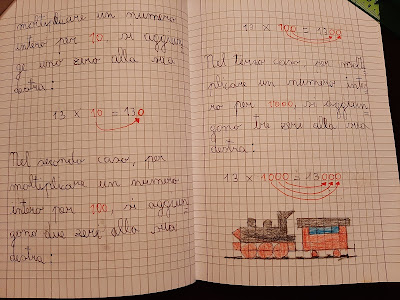 moltiplicare un numero
intero per 10, si aggiun
ge uno zero alla sua
destra:
13 × 10 = 130
Nel secondo caso, per
moltiplicare un numero
intero per 100, si aggiun
gono due zeri alla sua
destra:
13 × 100 = 1300
Nel terzo caso per molt
iplicare un numero inte
ro per 1000, si aggiun
gono tre zeri alla sua
destra:
13 × 1000 = 13000